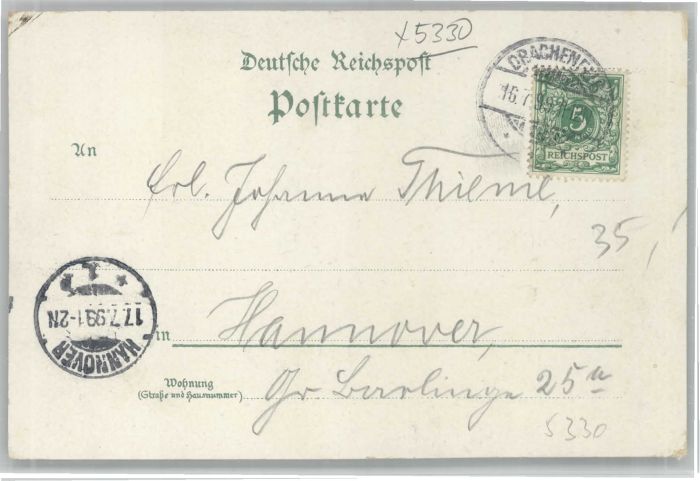 x5330
Deutsche Reichspost
Postkarte
16.7.99
5
REICHSPOST
An
Frl. Johanna Thieme,
35,
HANNOVER
17.7.99.1-2N
1
in
Hannover,
Wohnung
(Straße und Hausnummer)
Gr Barlinge 25 a
5330